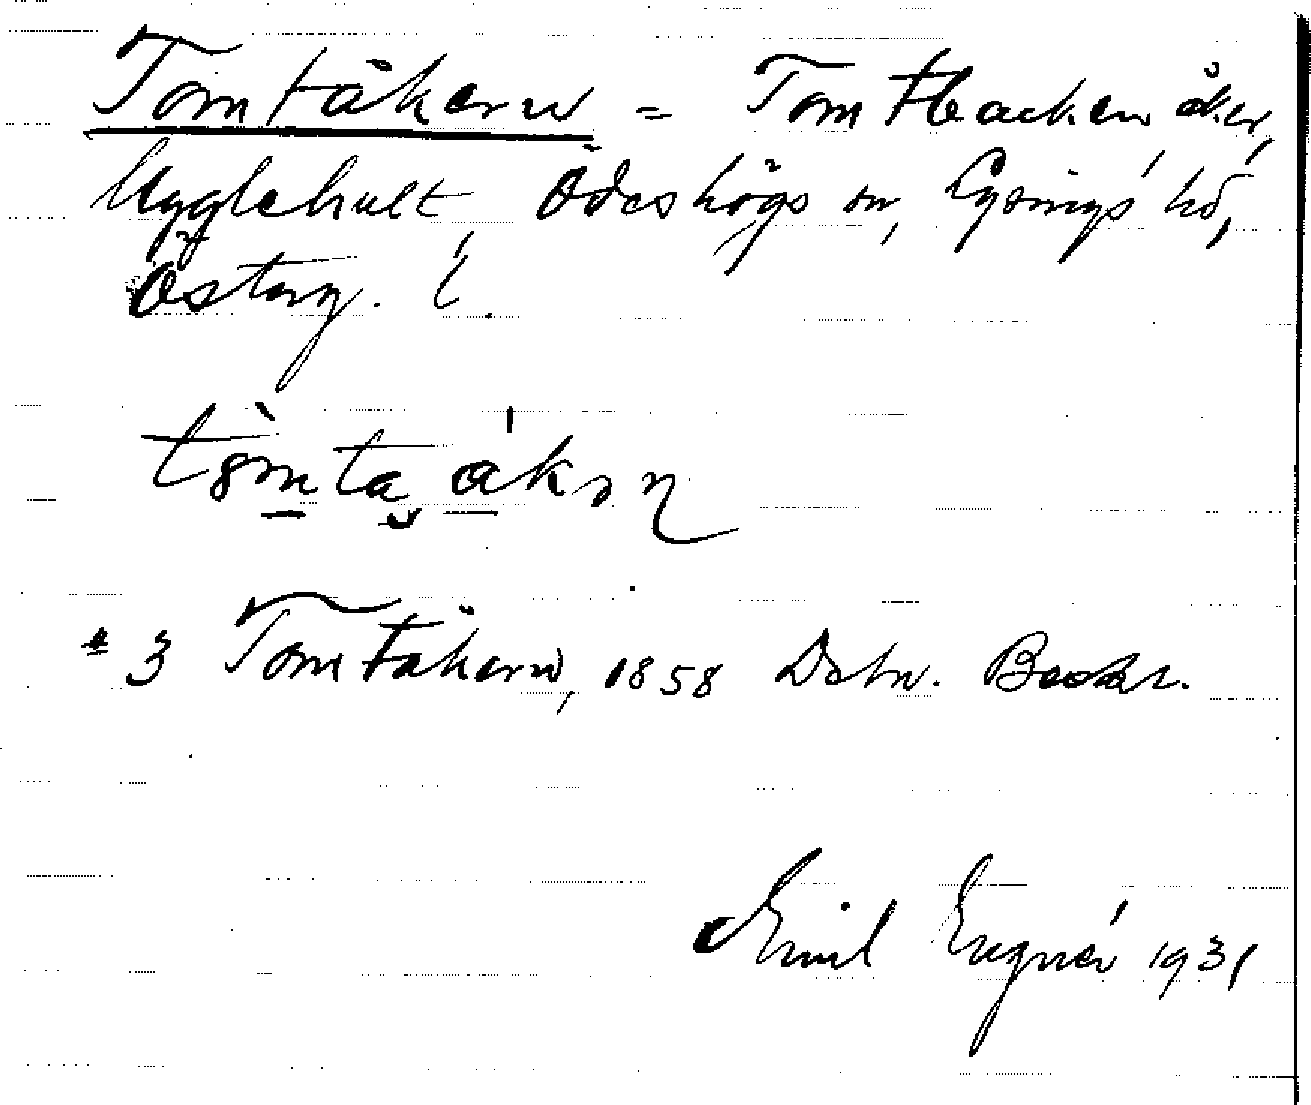 Tomtåkern = Tomtbacken åker,
Ugglehult Ödeshögs sn, Lysings hd,
Österg. l.
* 3 Tomtåkern, 1858 Deln. Beskr.
Emil Engnér 1931